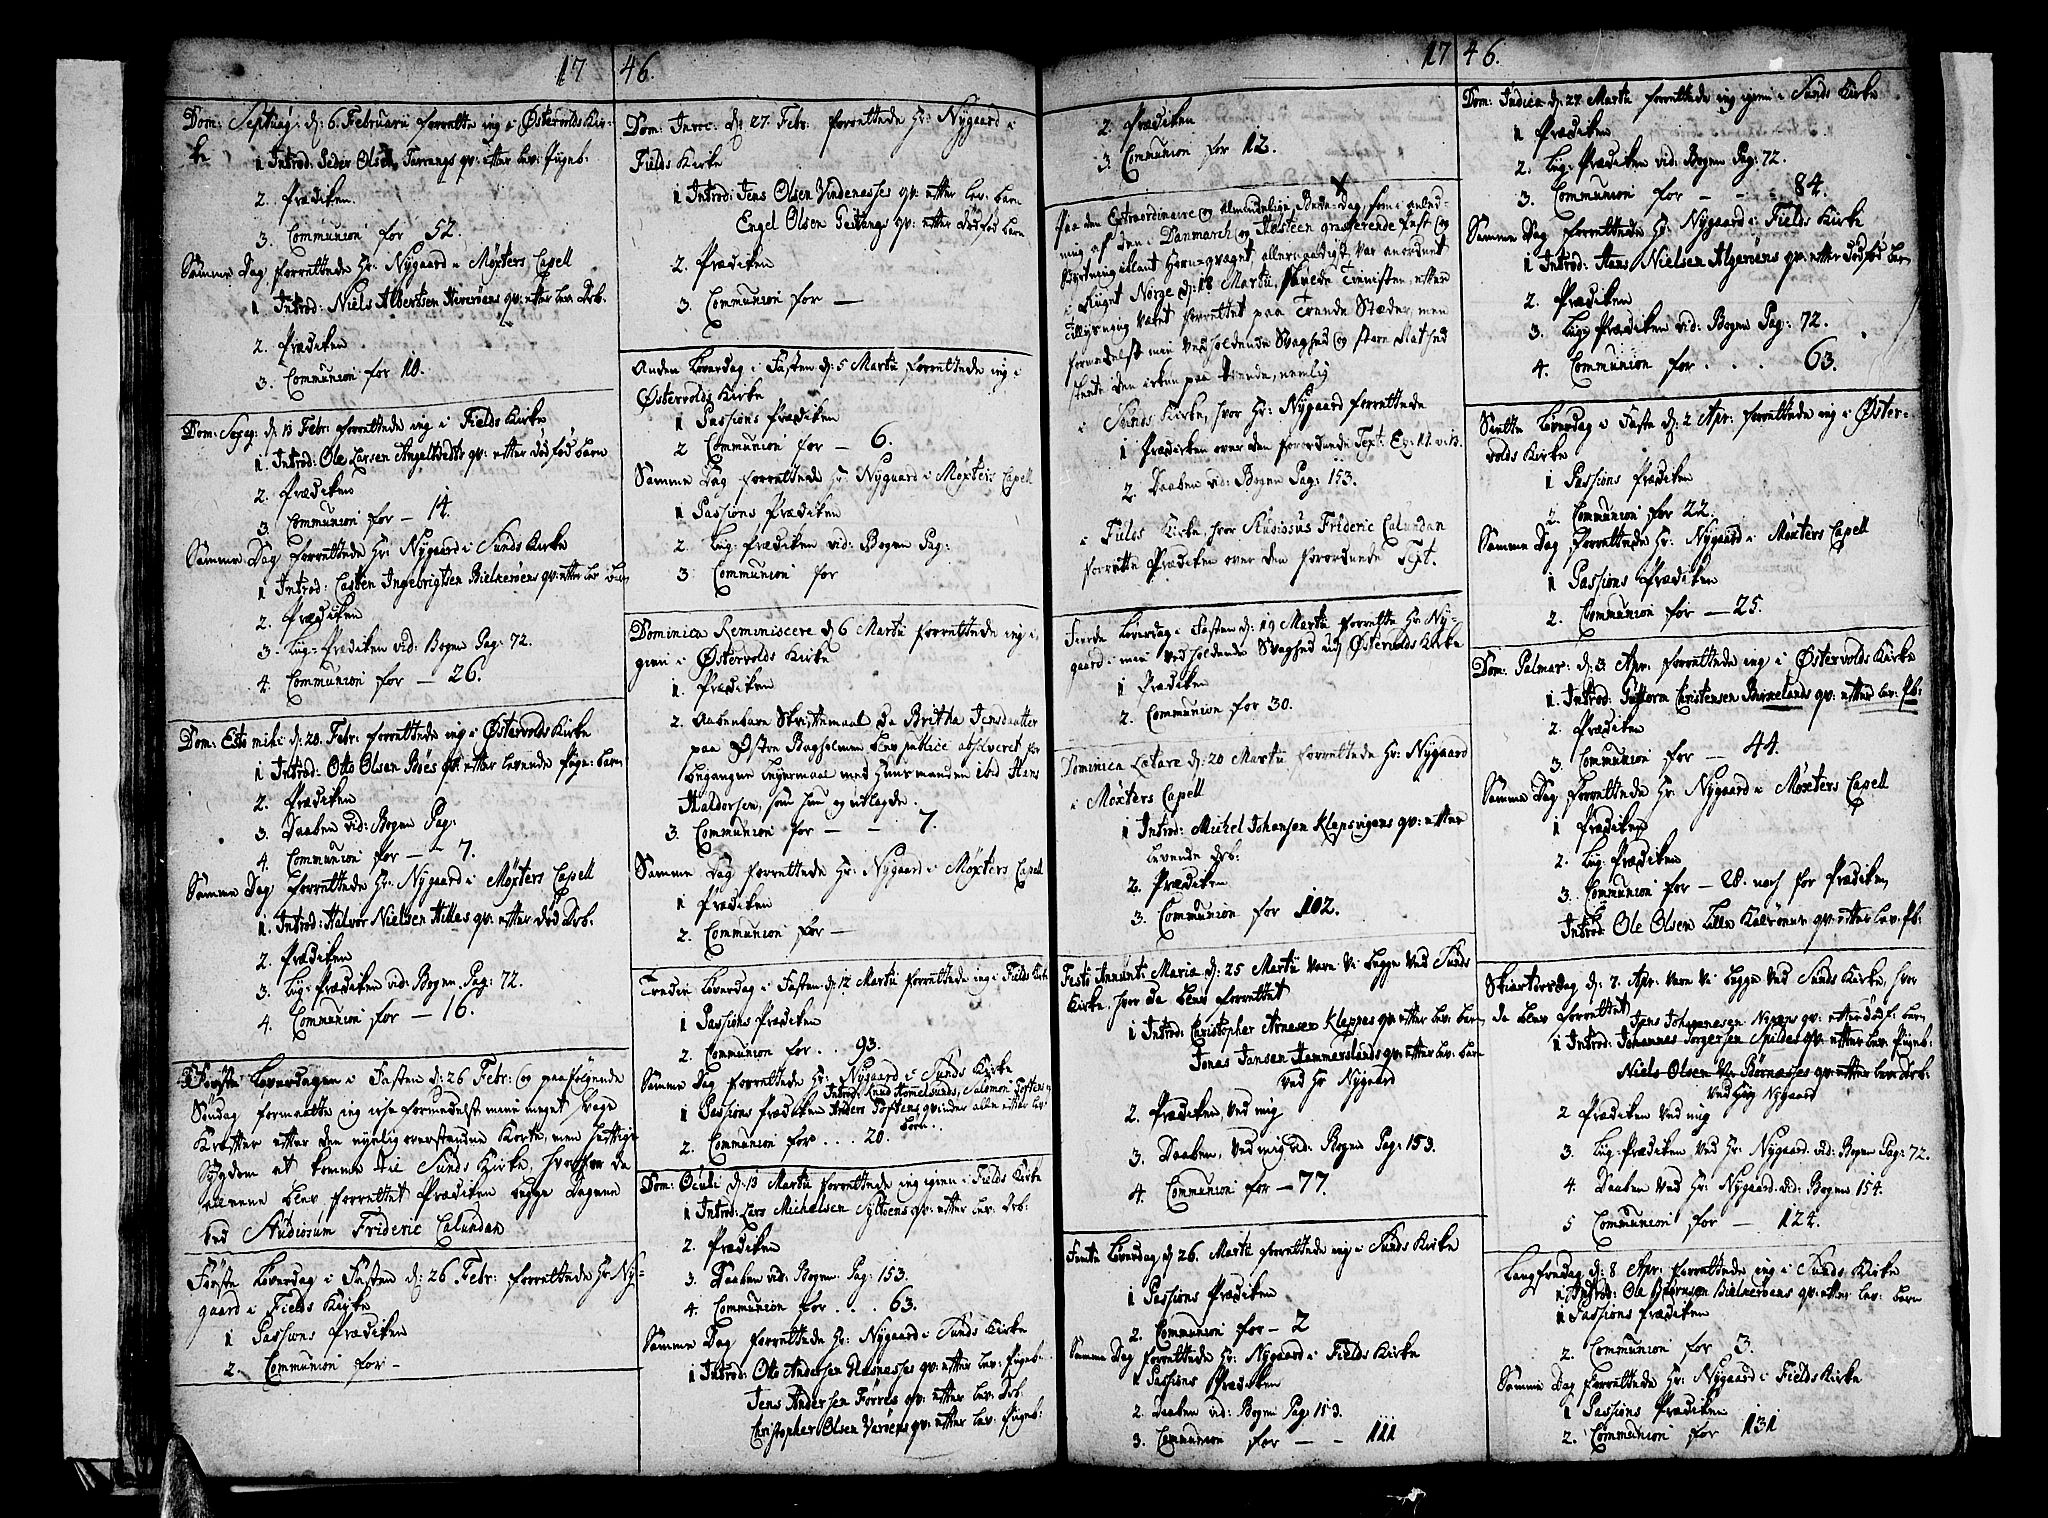 17 46.
Dom: Septuag: d: 6. Februarii forrettede ieg i Østervolds Kir-
ke 1 Introd: Peder Olsen Tarrangs qv: efter lev: Pigeb:
2. Prædiken
3. Communion for 52.
Samme Dag forrettede Hr: Nygaard i Møxters Capell
1. Introd: Niels Albertsen qv: efter lev: Drb.
2. Prædiken
3. Communion for 10.
Dom: Sexag: d: 13 Febr: forrettede ieg i Fields Kirke
1. Introd: Ole Larsen Angeltvedts qv: efter dødfød barn
2. Prædiken
3. Communion for — 14.
Samme Dag forrettede Hr: Nygaard i Sunds Kirke
1 Introd: Casten Ingebrigtsen Bielkerøens qv: efter lev: barn
2. Prædiken
3. Lig-Prædiken vid: Bogen Pag: 72.
4. Communion for — 26.
Dom: Esto mihi d: 20. Febr: forrettede ieg i Østervolds Kirke
1 Introd: Otto Olsen Bøes qv: efter levende Pige-barn
2. Prædiken
3. Daaben vid: Bogen Pag:
4. Communion for — 7.
Samme Dag forrettede Hr: Nygaard i Møxters Capell
1. Introd: Halvor Nielsen Hilles qv: efter død Drb:
2. Prædiken
3. Lig-Prædiken vid: Bogen Pag: 72.
4. Communion for — 16.
Første Løverdagen i Fasten d: 26 Febr: og paafølgende
Søndag formaatte ieg icke formedelst min meget svage
Kræfter efter den nyelig overstandne korte, men hæftige
Sygdom at komme til Sunds Kirke, hvorfor da
allene blev forrettet Prædiken begge Dagene
ved Studiosum Frideric Calundan
Første Løverdag i Fasten d: 26 Febr: forrettede Hr Ny-
gaard i Fields Kirke
1 Passions Prædiken
2. Communion for —
Dom: Invoc: d: 27. Febr: forrettede Hr: Nygaard i
Fields Kirke
1 Introd: Jens Olsen Vindenæsses qv: efter lev: barn
Engel Olsen Geitungs qv: efter dødfød barn
2. Prædiken
3. Communion for —
Anden Løverdag i Fasten d: 5 Martii forrettede ieg i
Østervolds Kirke
1 Passions Prædiken
2 Communion for — 6.
Samme Dag forrettede Hr Nygaard i Møxters Capell
1 Passions Prædiken
2. Lig-Prædiken vid: Bogen Pag:
3. Communion for
Dominica Reminiscere d: 6 Martii forrettede ieg i-
gien i Østervolds Kirke
1. Prædiken
2. Aabenbare Skriftemaal da Britha Jensdaatter
paa Østre Bagholmen blev publice absolveret for
begangne Leyermaal med Huusmanden ibid Hans
Haldorsen, som hun og utlagde.
3. Communion for — — 7.
Samme Dag forrettede Hr: Nygaard i Møxters Capell
1 Prædiken
2. Communion for —
Tredie Løverdag i Fasten d: 12 Martii forrettede ieg i Fields Kirke
1 Passions Prædiken
2. Communion for . . 93.
Samme Dag forrettede Hr: Nygaard i Sunds Kirke
Introd: Knud Hommelsunds, Salomon Toftens og
1 Passions Prædiken Anders Toftens qvinder alle efter lev:
2. Communion for . . . 20. børn.
Dom: Oculi d: 13 Martii forrettede ieg igien i Fields Kirke
1 Introd: Lars Michelsen Syltøens qv: efter lev: Drb:
2. Prædiken
3. Daaben vid: Bogen Pag: 153.
4. Communion for . . . 63.
Samme Dag forrettede Hr: Nygaard i Sunds Kirke
1 Introd: Otto Andersen qv: efter lev: Pigeb:
Jens Andersen Førres qv: efter lev: Drb:
Christopher Olsen Varøens qv: efter lev: Pigeb:
17 46.
2. Prædiken
3. Communion for 12.
Paa den Extraordinaire og Almindelige Bede-Dag, som i anled-
ning af den i Danmarch og Holsteen grasserende Pest og
Syge iblant Horn-qvæget, allernaadigst var anordnet
i Riiget Norge d: 18 Martii, efter
Tillysning været forrettet paa Trende Stæder, men
formedelst min vedholdende Svaghed og
den icken paa Tvende, nemlig
i Sunds Kirke, hvor Hr: Nygaard forrettede
1 Prædiken over den forordnede Text.
2. Daaben vid: Bogen Pag: 153.
i Fields Kirke, hvor Studiosus Frideric Calundan
forrettede Prædiken over den forordnede Text.
Fierde Løverdag i Fasten d: 19 Martii forrettede Hr Ny-
gaard i min vedholdende Svaghed udj Østervolds Kirke
1 Prædiken
2. Communion for 30.
Dominica Lætare d: 20 Martii forrettede Hr: Nygaard
i Møxters Capell
1 Introd: Michel Johansen Klepsvigens qv: efter
levende Drb:
2. Prædiken
3. Communion for 102.
Festo Annunt: Mariæ d: 25 Martii vare Vi begge ved Sunds
Kirke, hvor da blev forrettet
1 Introd: Christopher Arnesen Kleppes qv: efter lev: barn
Jonas Jansen Hammerslands qv: efter lev: barn
ved Hr Nygaard
2. Prædiken, ved mig
3. Daaben, ved mig vid: Bogen Pag: 153.
4. Communion for — 77.
Femte Løverdag d: 26. Martii forrettede ieg i Sunds Kirke
1 Passions Prædiken
2. Communion for — 2
Samme Dag forrettede Hr: Nygaard i Fields Kirke
1 Passions Prædiken
2. Daaben vid: Bogen Pag: 153.
3. Communion for — — 111
Dom: Judica d: 27. Martii forrettede ieg igien i Sunds Kirke
1 Prædiken
2. Lig-Prædiken vid: Bogen Pag: 72.
3. Communion for — — 84.
Samme Dag forrettede Hr: Nygaard i Fields Kirke
1 Introd: Hans Nielsen Algerøens qv: efter dødfød barn
2. Prædiken
3. Lig-Prædiken vid: Bogen Pag: 72.
4. Communion for . . . 63.
Siette Løverdag i Faste d: 2 Apr: forrettede ieg i Øster-
volds Kirke
1 Passions Prædiken
2. Communion for 22.
Samme Dag forrettede Hr: Nygaard i Møxters Capell
1 Passions Prædiken
2. Communion for — 25.
Dom: Palmar: d: 3. Apr: forrettede ieg i Østervolds Kirke
1. Introd: Guttorm Christensen Birkelands qv: efter lev: Pb:
2. Prædiken
3. Communion for — 44.
Samme Dag forrettede Hr: Nygaard i Møxters Capell
1 Prædiken
2. Lig-Prædiken
3. Communion for — 28. noch for Prædiken,
Introd: Ole Olsen Lille Kalsøens qv: efter lev: Pb:
Skiertorsdag d: 7. Apr: vare Vi begge ved Sunds Kirke, hvor
da blev forrettet
Jens Johannesen qv: efter dødf: barn
1 Introd: Johannes Jørgersen Spildes qv: efter lev: Pigeb:
Niels Olsen Vee Børnæsses qv: efter lev: Drb:
ved Hr: Nygaard
2 Prædiken ved mig
3. Lig-Prædiken ved Hr: Nygaard vid: Bogen Pag: 72.
4. Daaben ved Hr: Nygaard vid: Bogen 154.
5 Communion for — 124.
Langfredag d: 8. Apr: forrettede ieg i Sunds Kirke
1 Introd: Ole Biørnsen Bielkerøens qv: efter lev: barn
1 Passions Prædiken
2. Communion for 3.
Samme Dag forrettede Hr: Nygaard i Fields Kirke
1 Passions Prædiken
2. Communion for 131